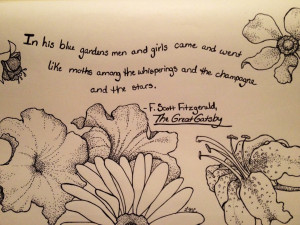 In his blue gardens men and girls came and went
like moths among the whisperings and the champagne
and the stars.
- F. Scott Fitzgerald,
The Great Gatsby